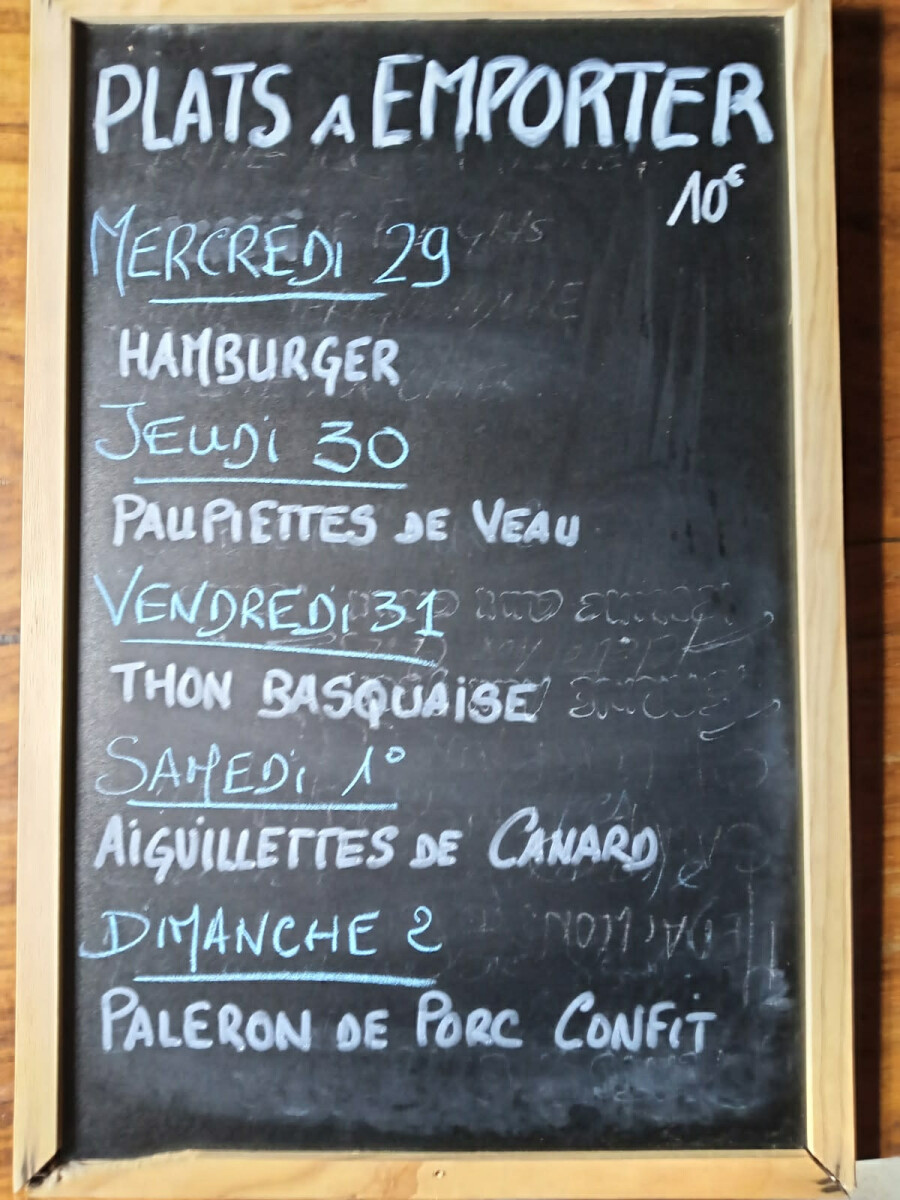 PLATS A EMPORTER
10€
MERCREDI 29
HAMBURGER
JEUDI 30
PAUPIETTES DE VEAU
VENDREDI 31
THON BASQUAISE
SAMEDI 1°
AIGUILLETTES DE CANARD
DIMANCHE 2
PALERON DE PORC CONFIT